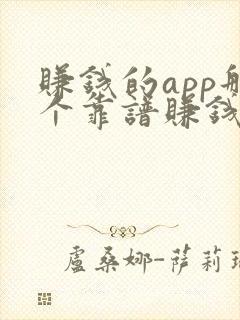 賺錢的app
个靠譜賺錢
盧桑娜-薩莉